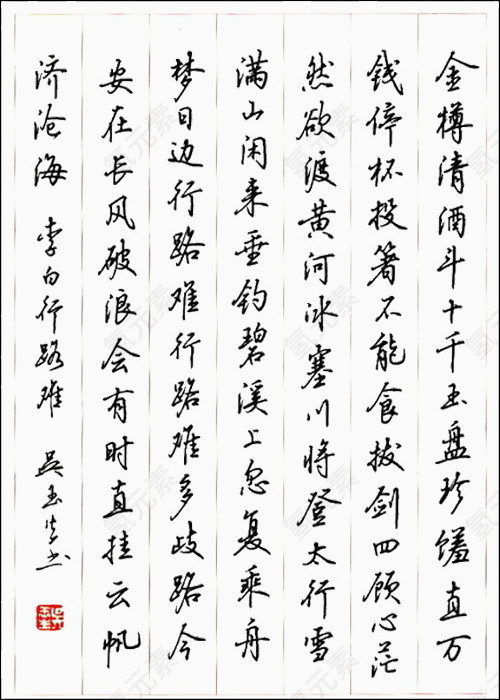 金樽清酒斗十千玉盘珍馐直万
钱停杯投箸不能食拔剑四顾心茫
然欲渡黄河冰塞川将登太行雪
满山闲来垂钓碧溪上忽复乘舟
梦日边行路难行路难多歧路今
安在长风破浪会有时直挂云帆
济沧海 李白行路难 吴玉生书
氢元素